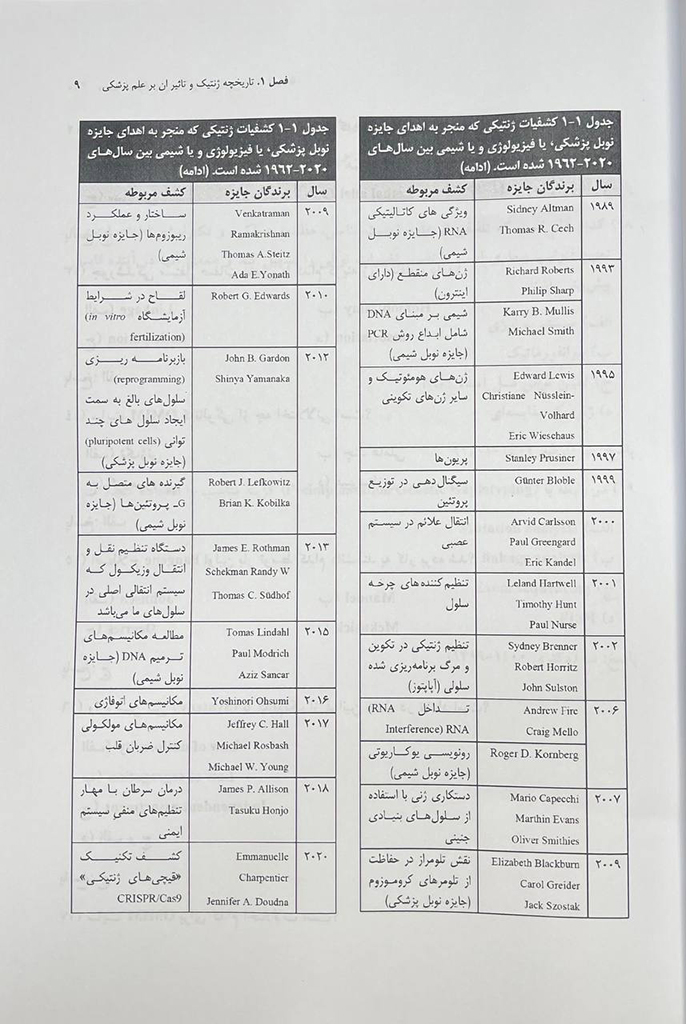 فصل ۱. تاریخچه ژنتیک و تاثیر آن بر علم پزشکی ۹
جدول ۱-۱ کشفیات ژنتیکی که منجر به اهدای جایزه
نوبل پزشکی، یا فیزیولوژی و یا شیمی بین سال‌های
۲۰۲۰-۱۹۶۲ شده است. (ادامه)
سال برندگان جایزه کشف مربوطه
۱۹۸۹ Sidney Altman ویژگی های کاتالیتیکی
Thomas R. Cech RNA (جایزه نوبل
شیمی)
۱۹۹۳ Richard Roberts ژن‌های منقطع (دارای
Philip Sharp اینترون)
Karry B. Mullis شیمی بر مبنای DNA
Michael Smith شامل ابداع روش PCR
(جایزه نوبل شیمی)
۱۹۹۵ Edward Lewis ژن‌های هومئوتیک و
Christiane Nüsslein- سایر ژن‌های تکوینی
Volhard
Eric Wieschaus
۱۹۹۷ Stanley Prusiner پریون‌ها
۱۹۹۹ Günter Bloble سیگنال‌دهی در توزیع
پروتئین
۲۰۰۰ Arvid Carlsson انتقال علائم در سیستم
Paul Greengard عصبی
Eric Kandel
۲۰۰۱ Leland Hartwell تنظیم کننده‌های چرخه
Timothy Hunt سلول
Paul Nurse
۲۰۰۲ Sydney Brenner تنظیم ژنتیکی در تکوین
Robert Horritz و مرگ برنامه‌ریزی شده
John Sulston سلولی (آپاپتوز)
۲۰۰۶ Andrew Fire تداخل RNA (RNA
Craig Mello Interference)
Roger D. Kornberg رونویسی یوکاریوتی
(جایزه نوبل شیمی)
۲۰۰۷ Mario Capecchi دستکاری ژنی با استفاده
Marthin Evans از سلول‌های بنیادی
Oliver Smithies جنینی
۲۰۰۹ Elizabeth Blackburn نقش تلومراز در حفاظت
Carol Greider از تلومرهای کروموزوم
Jack Szostak (جایزه نوبل پزشکی)
جدول ۱-۱ کشفیات ژنتیکی که منجر به اهدای جایزه
نوبل پزشکی، یا فیزیولوژی و یا شیمی بین سال‌های
۲۰۲۰-۱۹۶۲ شده است. (ادامه)
سال برندگان جایزه کشف مربوطه
۲۰۰۹ Venkatraman ساختار و عملکرد
Ramakrishnan ریبوزوم‌ها (جایزه نوبل
Thomas A.Steitz شیمی)
Ada E.Yonath
۲۰۱۰ Robert G. Edwards لقاح در شرایط
آزمایشگاه (in vitro
fertilization)
۲۰۱۲ John B. Gardon بازبرنامه ریزی
Shinya Yamanaka (reprogramming)
سلول‌های بالغ به سمت
ایجاد سلول های چند
توانی (pluripotent cells)
(جایزه نوبل پزشکی)
Robert J. Lefkowitz گیرنده های متصل به
Brian K. Kobilka G- پروتئین‌ها (جایزه
نوبل شیمی)
۲۰۱۳ James E. Rothman دستگاه تنظیم نقل و
Schekman Randy W انتقال وزیکول که
Thomas C. Südhof سیستم انتقالی اصلی در
سلول‌های ما می‌باشد
۲۰۱۵ Tomas Lindahl مطالعه مکانیسم‌های
Paul Modrich ترمیم DNA (جایزه
Aziz Sancar نوبل شیمی)
۲۰۱۶ Yoshinori Ohsumi مکانیسم‌های اتوفاژی
۲۰۱۷ Jeffrey C. Hall مکانیسم‌های مولکولی
Michael Rosbash کنترل ضربان قلب
Michael W. Young
۲۰۱۸ James P. Allison درمان سرطان با مهار
Tasuku Honjo تنظیم‌های منفی سیستم
ایمنی
۲۰۲۰ Emmanuelle کشف تکنیک
Charpentier «قیچی‌های ژنتیکی»
Jennifer A. Doudna CRISPR/Cas9